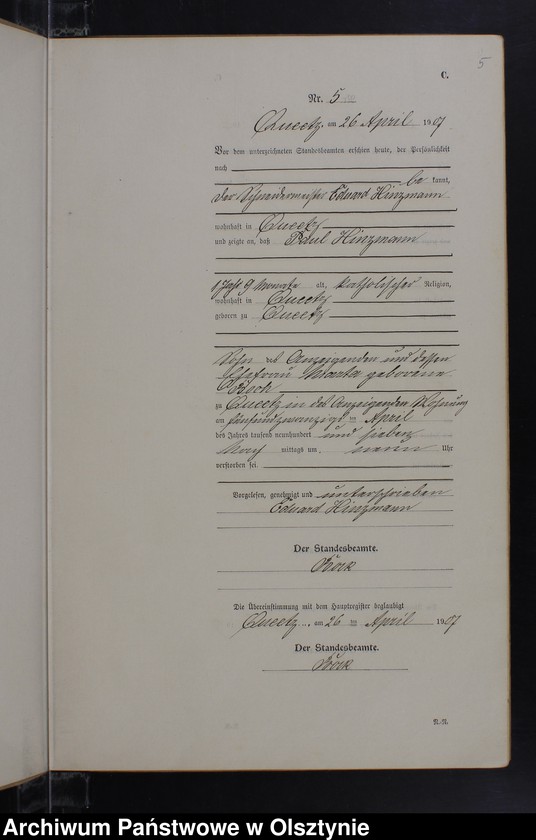 5
C.
Nr. 5
Queetz am 26 April 1907
Vor dem unterzeichneten Standesbeamten erschien heute, der Persönlichkeit
nach
be kannt,
der Schneidermeister Eduard Hinzmann
wohnhaft in Queetz
und zeigte an, daß Paul Hinzmann
1 Jahr 9 Monate alt, katholischer Religion,
wohnhaft in Queetz
geboren zu Queetz
Sohn des Anzeigenden und dessen
Ehefrau geborene
zu Queetz in des Anzeigenden Wohnung
am fünfundzwanzigsten April
des Jahres tausend neunhundert und sieben
Nach mittags um neun Uhr
verstorben sei.
Vorgelesen, genehmigt und unterschrieben
Eduard Hinzmann
Der Standesbeamte.
Die Übereinstimmung mit dem Hauptregister beglaubigt
Queetz, am 26 ten April 1907
Der Standesbeamte.
Archiwum Państwowe w Olsztynie